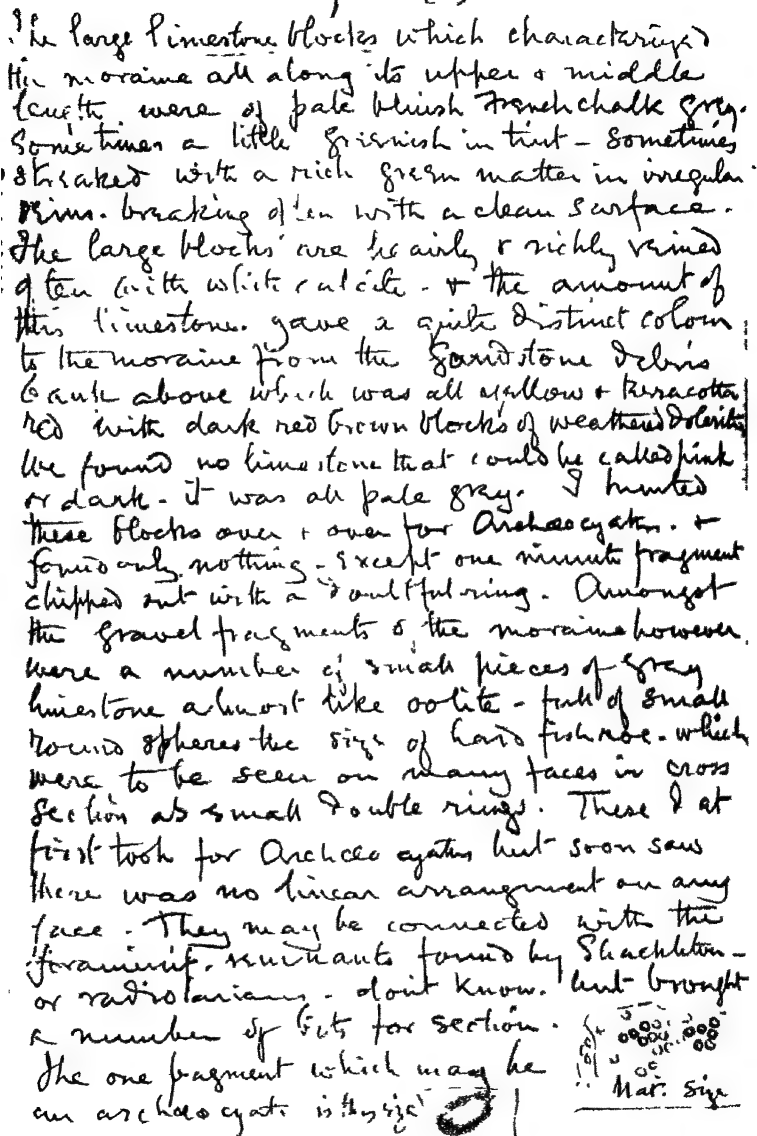 The large limestone blocks which characterized
the moraine all along its upper & middle
length were of pale bluish Frenchchalk grey.
Sometimes a little greenish in tint - sometimes
streaked with a rich green matter in irregular
veins. breaking often with a clean surface.
The large blocks are heavily & richly veined
often with white calcite - & the amount of
this limestone. gave a quite distinct colour
to the moraine from the Sandstone debris
bank above which was all yellow & terracotta
red with dark red brown blocks of weathered dolerite
We found no limestone that could be called pink
or dark - it was all pale grey. I hunted
these blocks over & over for Archaeocyath. &
found only nothing - except one minute fragment
chipped out with a doubtful ring. Amongst
the gravel fragments of the moraine however,
were a number of small pieces of grey
limestone almost like oolite - full of small
round spheres the size of hard fish roe - which
were to be seen on many faces in cross
section as small double rings. These I at
first took for Archaeocyaths but soon saw
there was no linear arrangement on any
face. They may be connected with the
foraminif. remnants found by Shackleton -
or radiolarians - dont know. but brought
a number of bits for section.
Nat. Size
The one fragment which may be
an archaeocyath is this size